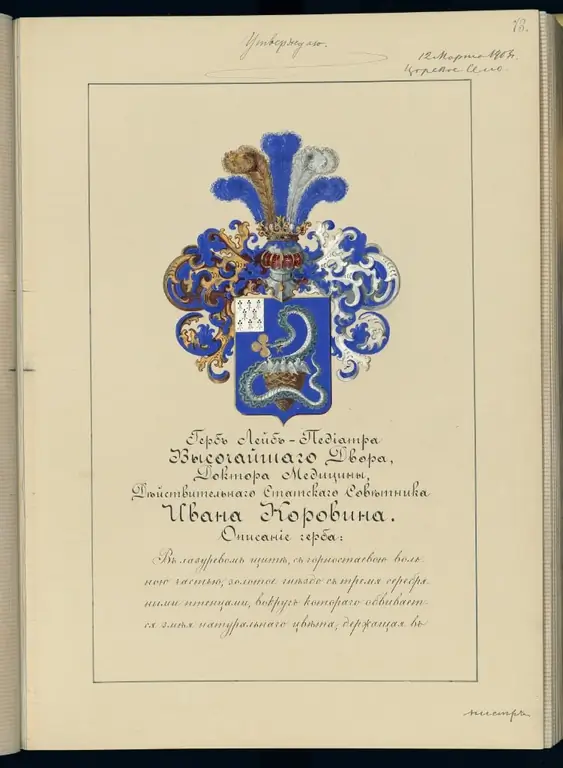 73.
Утверждаю.
12 Марта 1907.
Царское Село.
Гербъ Лейбъ-Педіатра
Высочайшаго Двора,
Доктора Медицины,
Дѣйствительнаго Статскаго Совѣтника
Ивана Коровина.
Описаніе герба:
Въ лазуревомъ щитѣ, съ горностаевою воль-
ною частью, золотое гнѣздо съ тремя серебря-
ными птенцами, вокругъ котораго обвивает-
ся змѣя натуральнаго цвѣта, держащая въ